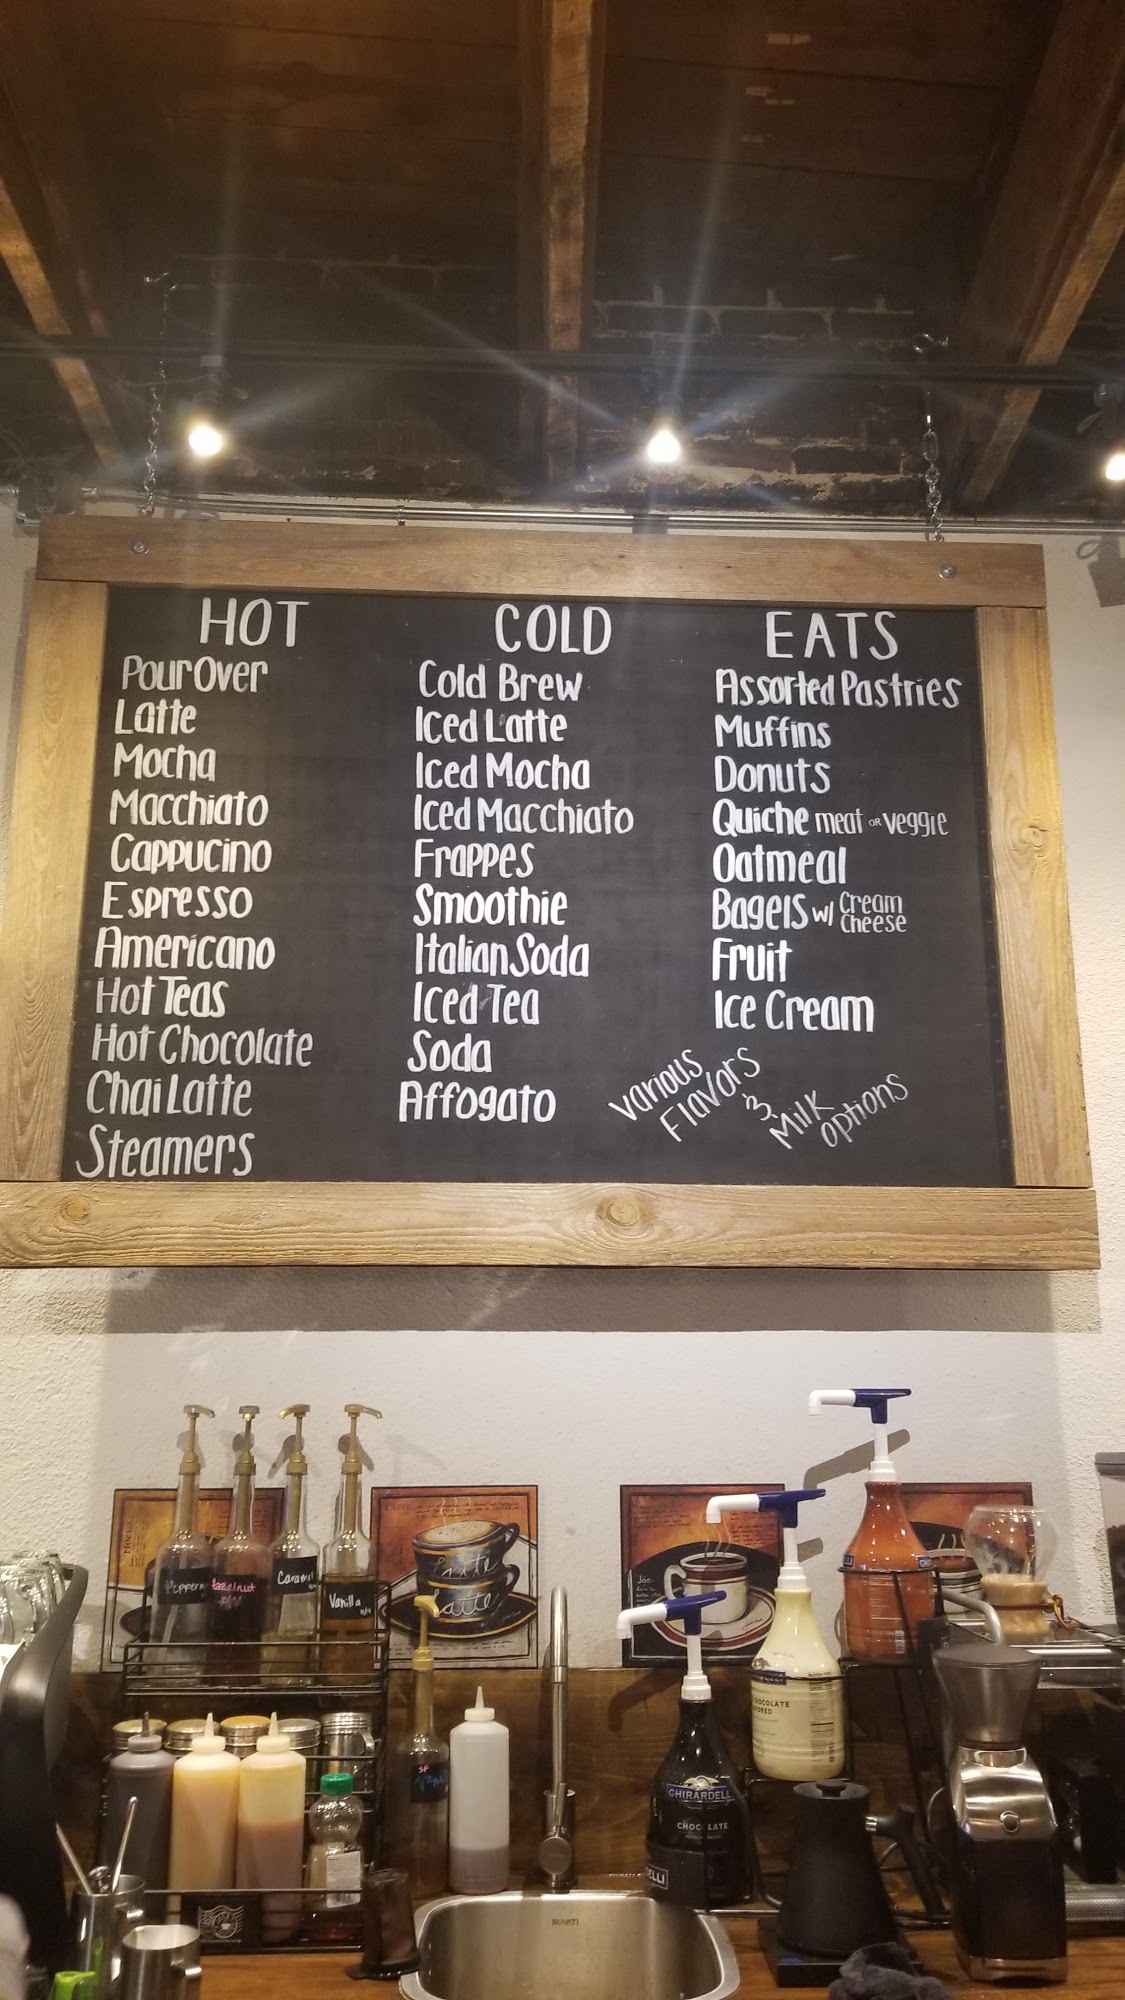 HOT
Pour Over
Latte
Mocha
Macchiato
Cappucino
Espresso
Americano
Hot Teas
Hot Chocolate
Chai Latte
Steamers
COLD
Cold Brew
Iced Latte
Iced Mocha
Iced Macchiato
Frappes
Smoothie
Italian Soda
Iced Tea
Soda
Affogato
EATS
Assorted Pastries
Muffins
Donuts
Quiche meat or veggie
Oatmeal
Bagels w/ Cream Cheese
Fruit
Ice Cream
Various
Flavors
&
Milk
options
Hazelnut
Vanilla
Latte
Latte
Joe
SF
GHIRARDELLI
CHOCOLATE
RUVATI